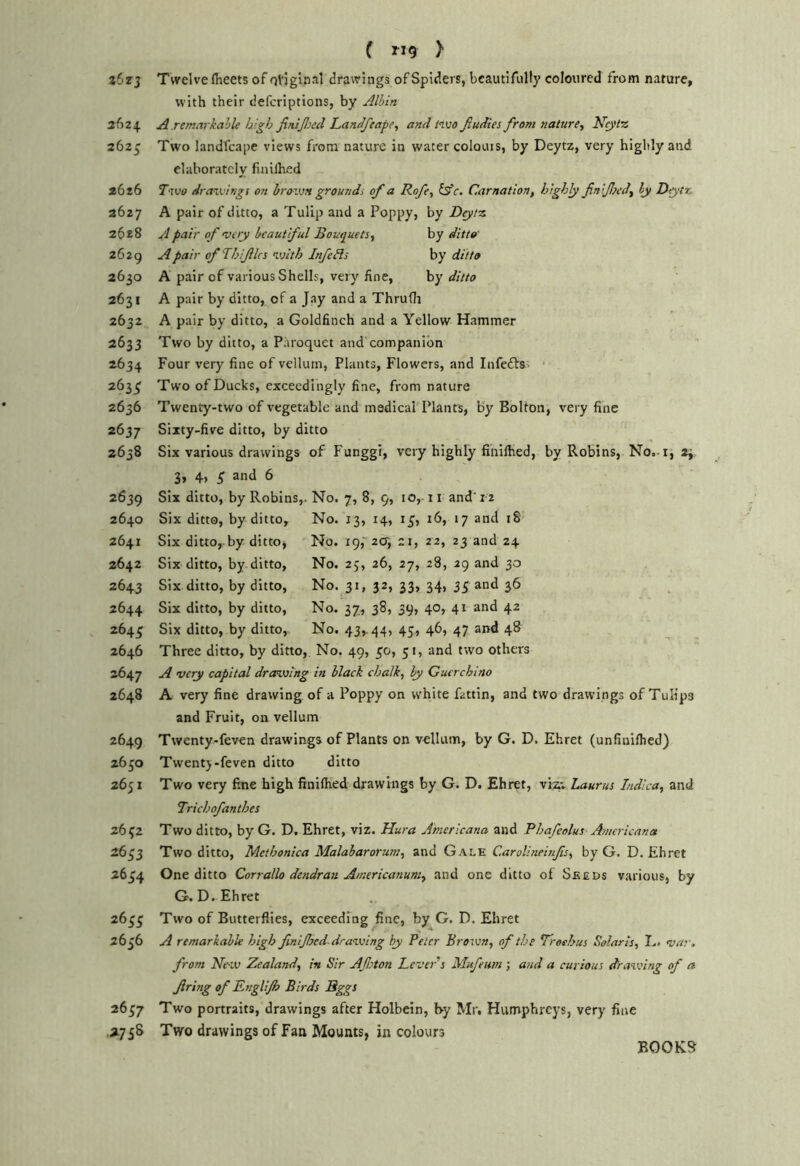 ( 119 )
2623 Twelve ſheets of original drawings of Spiders, beautifully coloured from nature,
with their deſcriptions, by Albin
2624 A remarkable high finiſhed Landſcape, and two ſtudies from nature, Neytz
2625 Two landſcape views from nature in water colours, by Deytz, very highly and
elaborately finiſhed
2626 Two drawings on brown grounds of a Roſe, &c. Carnation, highly finiſhed, by Deytz
2627 A pair of ditto, a Tulip and a Poppy, by Deytz
2628 A pair of very beautiful Bouquets, by ditto
2629 A pair of Thiſtles with Inſects by ditto
2630 A pair of various Shells, very fine, by ditto
2631 A pair by ditto, of a Jay and a Thruſh
2632 A pair by ditto, a Goldfinch and a Yellow Hammer
2633 Two by ditto, a Paroquet and companion
2634 Four very fine of vellum, Plants, Flowers, and Inſects
2635 Two of Ducks, exceedingly fine, from nature
2636 Twenty-two of vegetable and medical Plants, by Bolton, very fine
2637 Sixty-five ditto, by ditto
2638 Six various drawings of Funggi, very highly finiſhed, by Robins, No. 1, 2,
3, 4, 5 and 6
2639 Six ditto, by Robins, No. 7, 8, 9, 10, 11 and 12
2640 Six ditto, by ditto, No. 13, 14, 15, 16, 17 and 18
2641 Six ditto, by ditto, No. 19, 20, 21, 22, 23 and 24
2642 Six ditto, by ditto, No. 25, 26, 27, 28, 29 and 30
2643 Six ditto, by ditto, No. 31, 32, 33, 34, 35 and 36
2644 Six ditto, by ditto, No. 37, 38, 39, 40, 41 and 42
2645 Six ditto, by ditto, No. 43, 44, 45, 46, 47 and 48
2646 Three ditto, by ditto, No. 49, 50, 51, and two others
2647 A very capital drawing in black chalk, by Guerchino
2648 A very fine drawing of a Poppy on white ſattin, and two drawings of Tulips
and Fruit, on vellum
2649 Twenty-ſeven drawings of Plants on vellum, by G. D. Ehret (unfiniſhed)
2650 Twenty-ſeven ditto ditto
2651 Two very fine high finiſhed drawings by G. D. Ehret, viz. Laurus Indica, and
Trichoſanthes
2652 Two ditto, by G. D. Ehret, viz. Hura Americana and Phaſeolus Americana
2653 Two ditto, Methonica Malabarorum, and GALE Carolineinſis, by G. D. Ehret
2654 One ditto Corrallo dendran Americanum, and one ditto of SEEDS various, by
G. D. Ehret
2655 Two of Butterflies, exceeding fine, by G. D. Ehret
2656 A remarkable high finiſhed drawing by Peter Brown, of the Trochus Solaris, L. var.
from New Zealand, in Sir Aſhton Lever's Muſeum; and a curious drawing of a
ſtring of Engliſh Birds Eggs
2657 Two portraits, drawings after Holbein, by Mr. Humphreys, very fine
2758 Two drawings of Fan Mounts, in colours
BOOKS